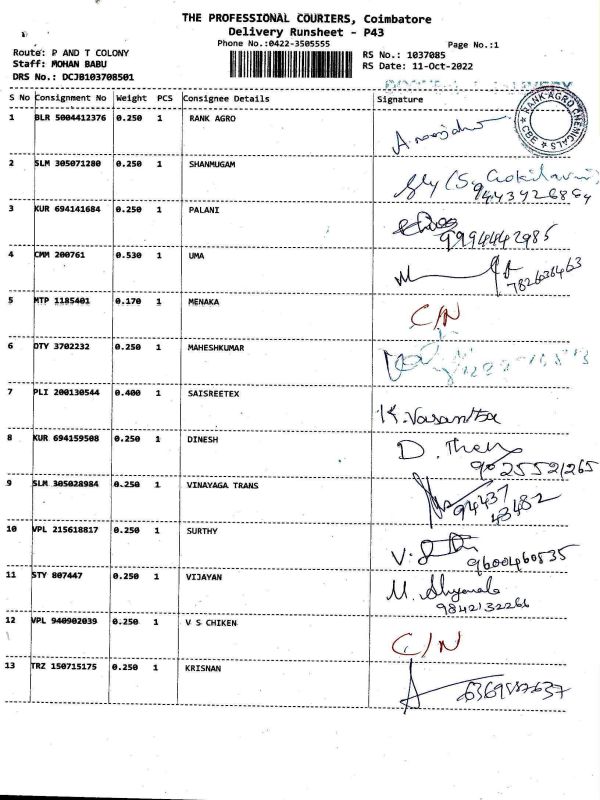 THE PROFESSIONAL COURIERS, Coimbatore
Delivery Runsheet - P43
Phone No.:0422-3505555
Page No.:1
Route: P AND T COLONY
RS No.: 1037085
Staff: MOHAN BABU
RS Date: 11-Oct-2022
DRS No.: DCJB103708501
S No Consignment No Weight PCS Consignee Details Signature
1 BLR 5004412376 0.250 1 RANK AGRO
RANK AGRO CHEMICALS ★ CBE ★
2 SLM 305071280 0.250 1 SHANMUGAM
3 KUR 694141684 0.250 1 PALANI
9994442985
4 CMM 200761 0.530 1 UMA
5 MTP 1185401 0.170 1 MENAKA C/N
6 DTY 3702232 0.250 1 MAHESHKUMAR
7 PLI 200130544 0.400 1 SAISREETEX K. Vasantha
8 KUR 694159508 0.250 1 DINESH
9025521265
9 SLM 305028984 0.250 1 VINAYAGA TRANS
94437
43482
10 VPL 215618817 0.250 1 SURTHY
9600460535
11 STY 807447 0.250 1 VIJAYAN M. Shyamala
9842132266
12 VPL 940902039 0.250 1 V S CHIKEN C/N
13 TRZ 150715175 0.250 1 KRISNAN